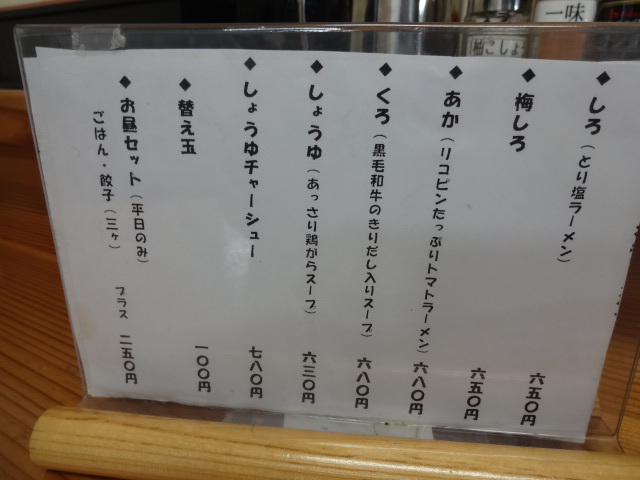 一味
柚こしょ
◆しろ（とり塩ラーメン） 六五〇円
◆梅しろ 六五〇円
◆あか（リコピンたっぷりトマトラーメン） 六八〇円
◆くろ（黒毛和牛のきりだし入りスープ） 六八〇円
◆しょうゆ（あっさり鶏がらスープ） 六三〇円
◆しょうゆチャーシュー 七八〇円
◆替え玉 一〇〇円
◆お昼セット（平日のみ）
ごはん・餃子（三ヶ） プラス 二五〇円